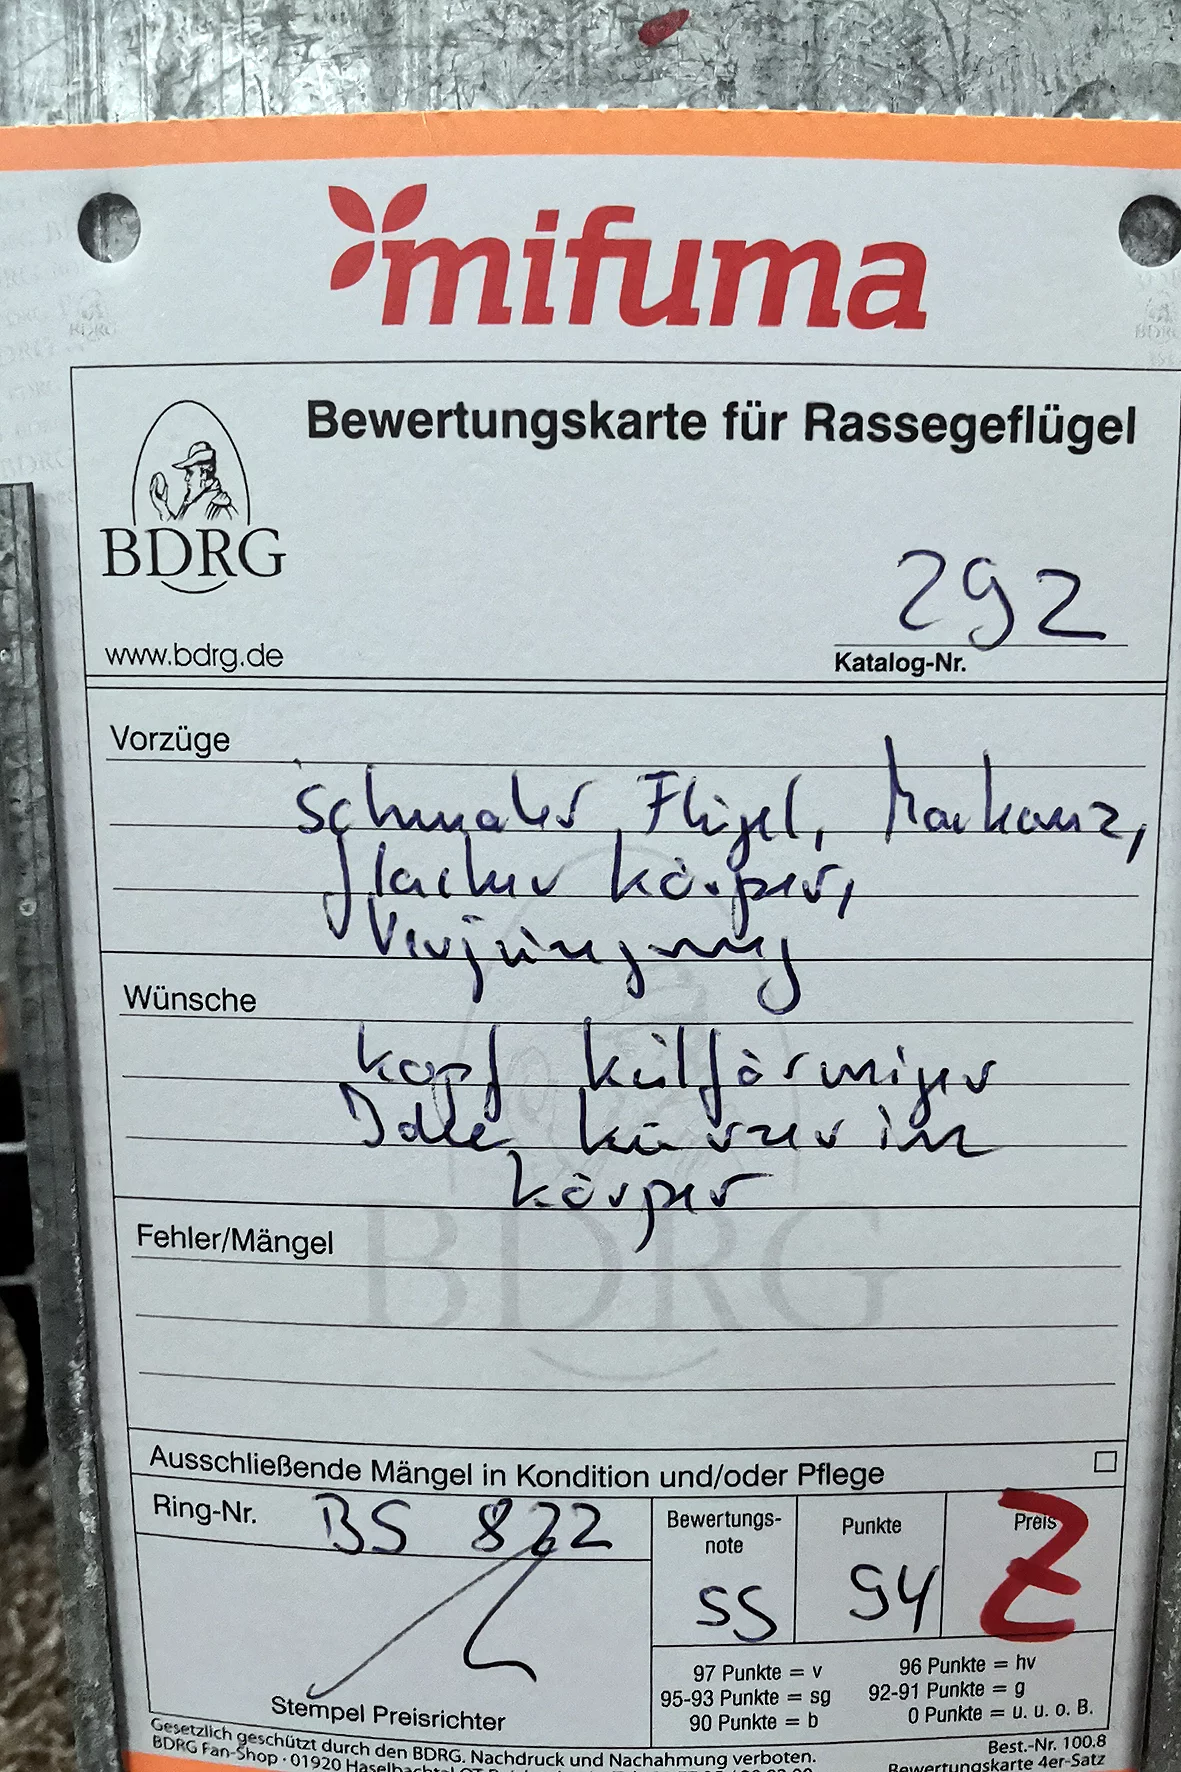 mifuma
Bewertungskarte für Rassegeflügel
BDRG
www.bdrg.de
292
Katalog-Nr.
Vorzüge
Schmaler, Flügel, Markanz,
flacher Körper,
Verjüngung
Wünsche
Kopf keilförmiger
Idee kürzer im
Körper
BDRG
Fehler/Mängel
Ausschließende Mängel in Kondition und/oder Pflege
Ring-Nr. BS 822
Bewertungs-
note
SG
Punkte
94
Preis
Z
Stempel Preisrichter
97 Punkte = v
96 Punkte = hv
95-93 Punkte = sg
92-91 Punkte = g
90 Punkte = b
0 Punkte = u. u. o. B.
Gesetzlich geschützt durch den BDRG. Nachdruck und Nachahmung verboten.
Best.-Nr. 100.8
BDRG Fan-Shop · 01920 Haselbachtal
Bewertungskarte 4er-Satz